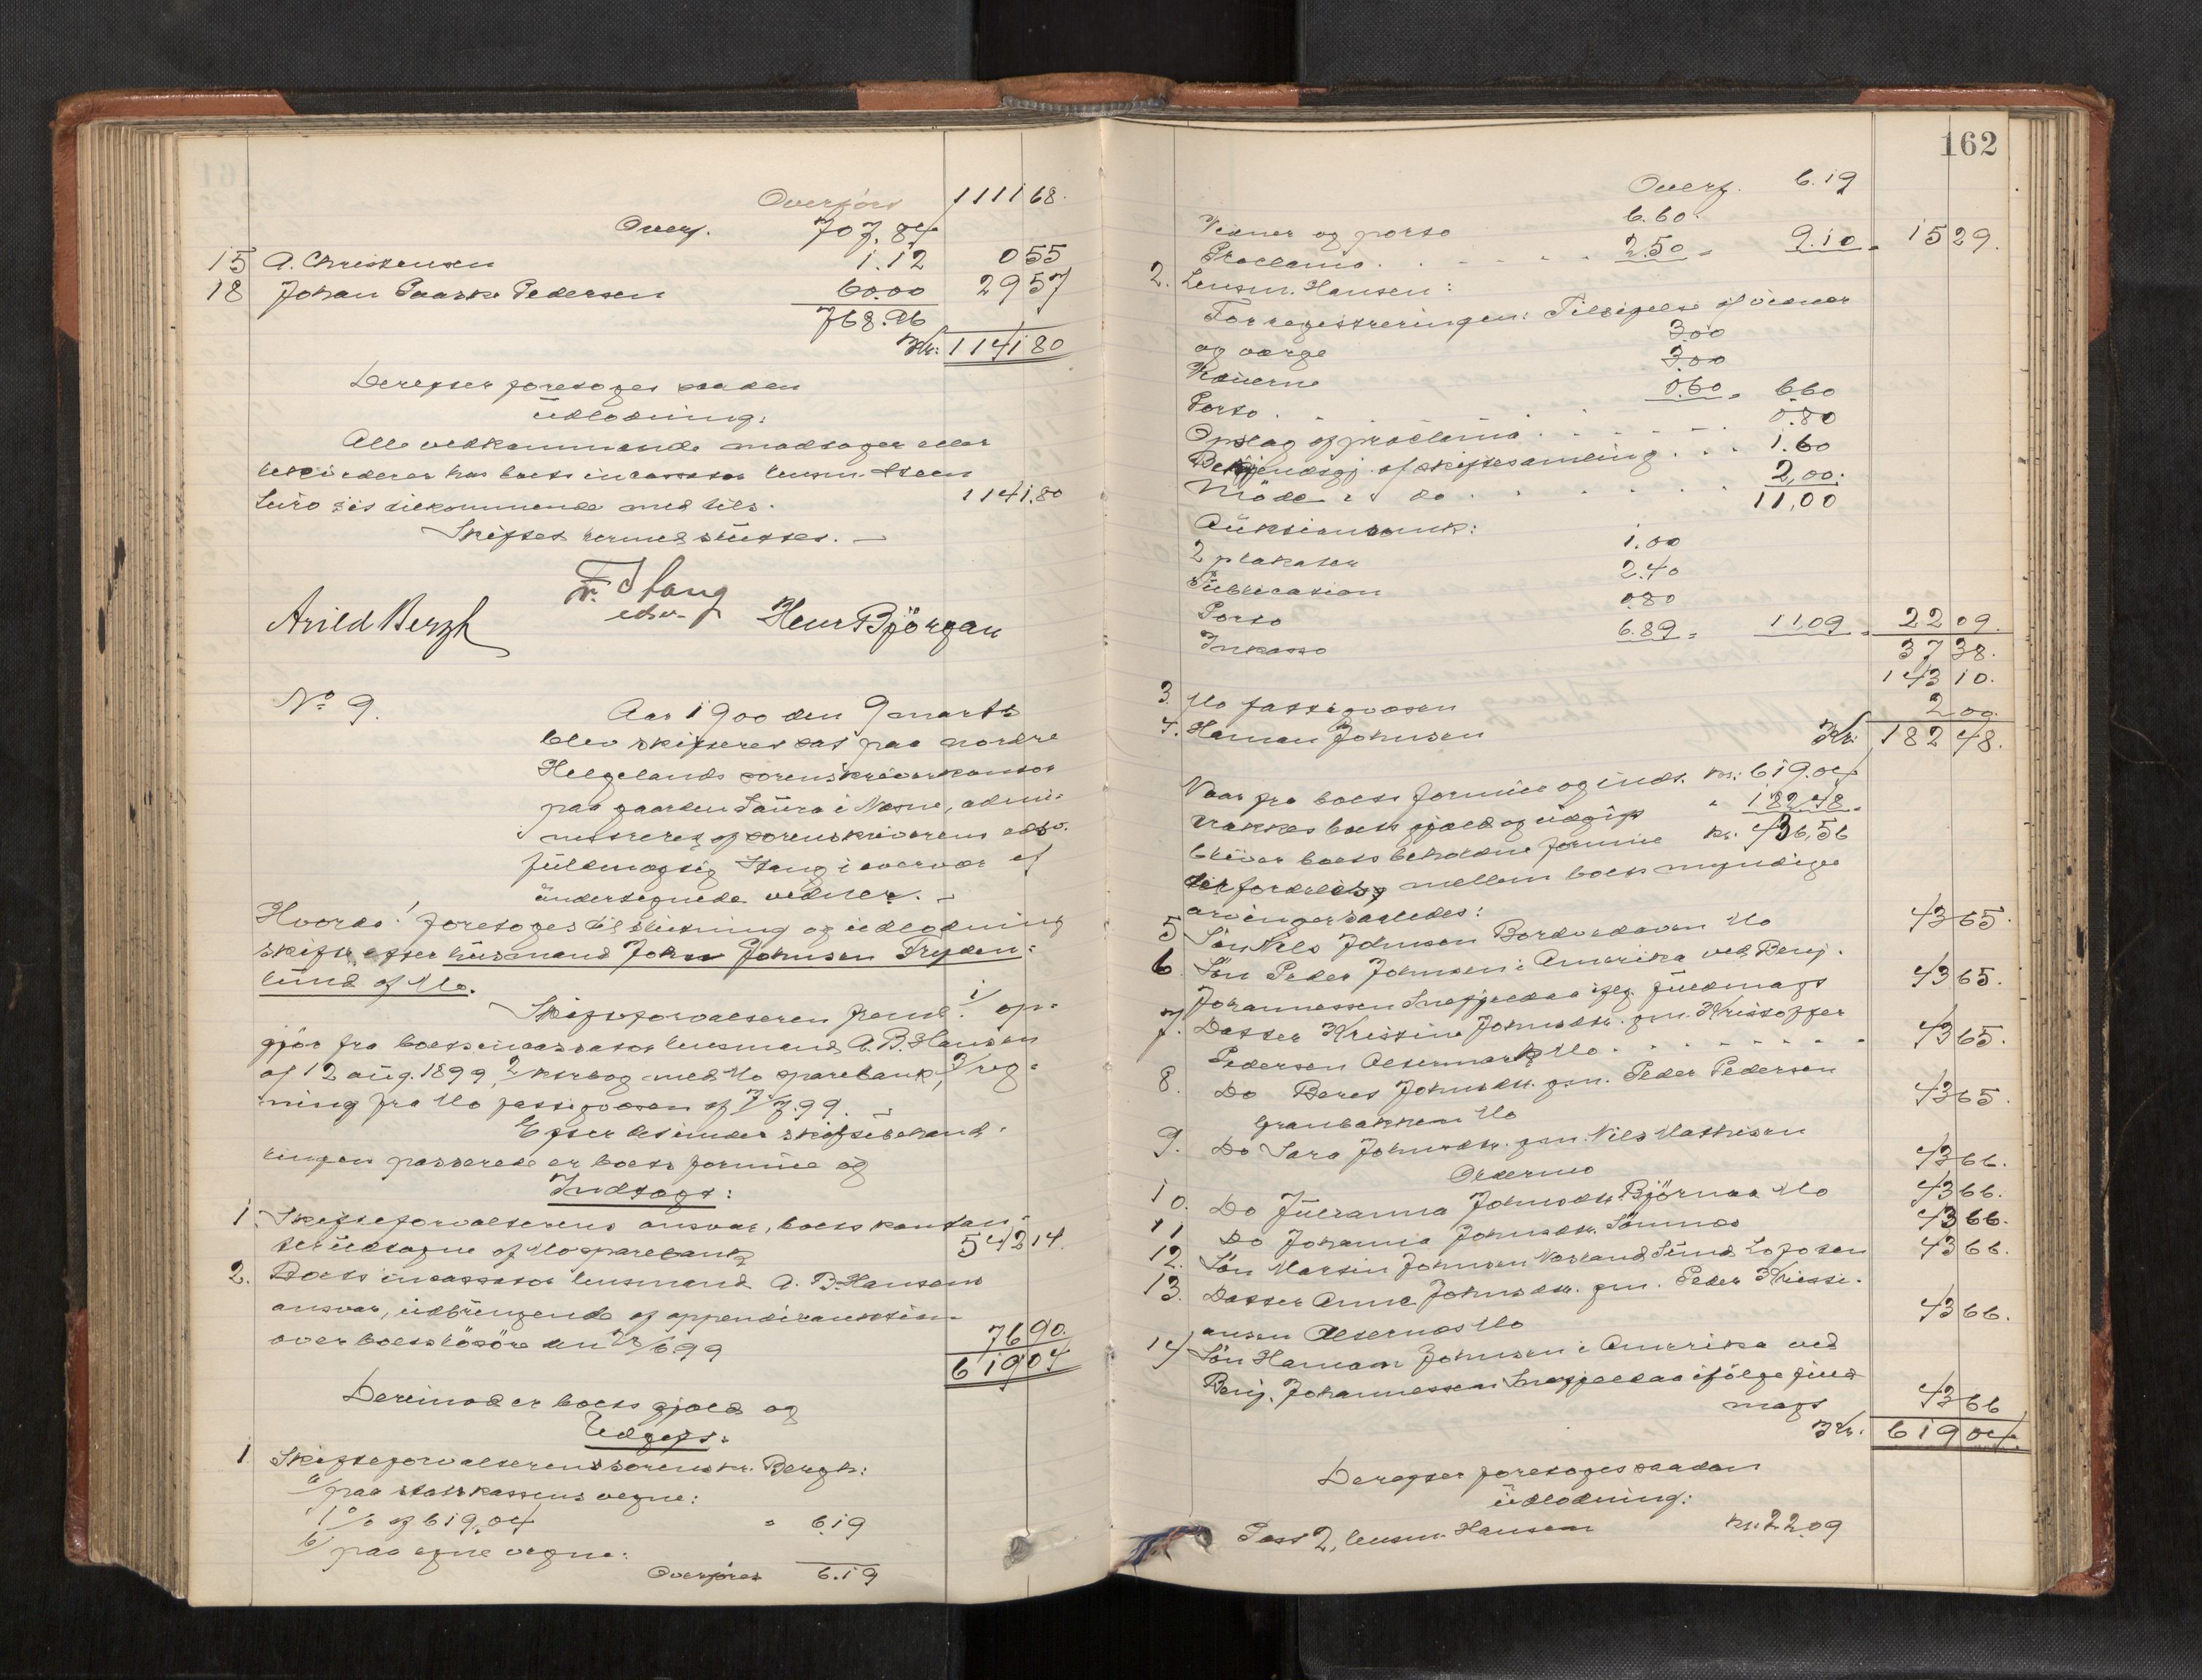 Overføres 1111 68.
Overf. 707.84
15 A. Christensen 1.12 0 55
18 Johan Paaske Pedersen 60.00 29 57
768.96
Kr: 1141 80
Derefter foretoges saaden
udlodning:
Alle vedkommende modtager eller
har boets incassator lensm. Steen
Lurø sit tilkommende med tils. 1141.80
Skiftet hermed sluttet. —
Fr. Stang
edsv. f
Arild Bergh Henr Bjørgan
No 9. Aar 1900 den 9 marts
blev skifteret sat paa nordre
Helgelands sorenskriverkontor
paa gaarden Saura i Nesne, admi-
nistreret af sorenskriverens edsv.
fuldmægtig Stang i overvær af
undertegnede vidner. —
Hvorda! foretoges til slutning og udlodning
skifte efter husmand John Johnsen Tryden-
lund af Mo.
Skifteforvalteren freml. 1/ op-
gjør fra boets incassator lensmand A. B. Hansen
af 12 aug. 1899, 2/ ktrbog med Mo sparebank, 3/ reg-
ning fra Mo fattigvæsen af 7/7.99. —
Efter det under skiftebehand-
lingen passerede er boets formue og
Indtægt:
1. Skifteforvalterens ansvar, boets kontan-
ter udtagne af Mo sparebank 542 14.
2. Boets incassator lensmand A. B. Hansens
ansvar, udbringende af
over boets løsøre den /6 99 76 90.
619 04
Derimod er boets gjæld og
Udgift:
1 Skifteforvalteren sorenskr. Bergh:
a/ paa statskassens vegne:
1 % af 619.04 " 6.19
b/ paa egne vegne:
Overføres 6.19
162
Overf. 6.19
Vidner og porto 6.60
Proclama 2.50 = 9.10 = 15 29.
2. Lensm. Hansen:
For registreringen: Tilsigelse af vidner
og værge 3.00
3.00
Porto 0.60 = 6.60
Opslag af proclama 0.80
Bekjendtgj. af skiftesamling 1.60
Møde i do 2,00.
11,00
2 plakater 1.00
Publication 2.40
Porto 0.80
Inkasso 6.89 = 11.09 = 22 09.
37 38.
3. Mo fattigvæsen 143 10.
4. Haman Johnsen 2 00.
Kr: 182 48.
Naar fra boets formue og indt. kr. 619.04
trækkes boets gjæld og udgift " 182.48.
bliver boets beholdne formue kr. 436,56
til fordeling mellem boets myndige
arvinger saaledes:
5 Søn Nils Johnsen Mo 43 65.
6 Søn Peder Johnsen i Amerika ved Benj.
Johannessen ifølg. fuldmagt 43 65.
7. Datter Kristine Johnsdtr. gm. Kristoffer
Pedersen Mo 43 65.
8. Do Beret Johnsdtr. gm. Peder Pedersen
Granbakken Mo 43 65.
9. Do Sara Johnsdtr. gm. Nils Mathisen
43 66.
10. Do Julianna Johnsdtr. Bjørnaa Mo 43 66.
11 Do Johanna Johnsdtr. Sømnæs 43 66.
12. Søn Martin Johnsen Sund Lofoten 43 66.
13. Datter Anne Johnsdtr. gm. Peder Kristi-
ansen Mo 43 66.
14 Søn Haman Johnsen i Amerika ved
Benj. Johannessen ifølge fuld
magt 43 66
Kr. 619 04.
Derefter foretoges saadan
udlodning:
Post 2, lensm. Hansen kr. 22.09